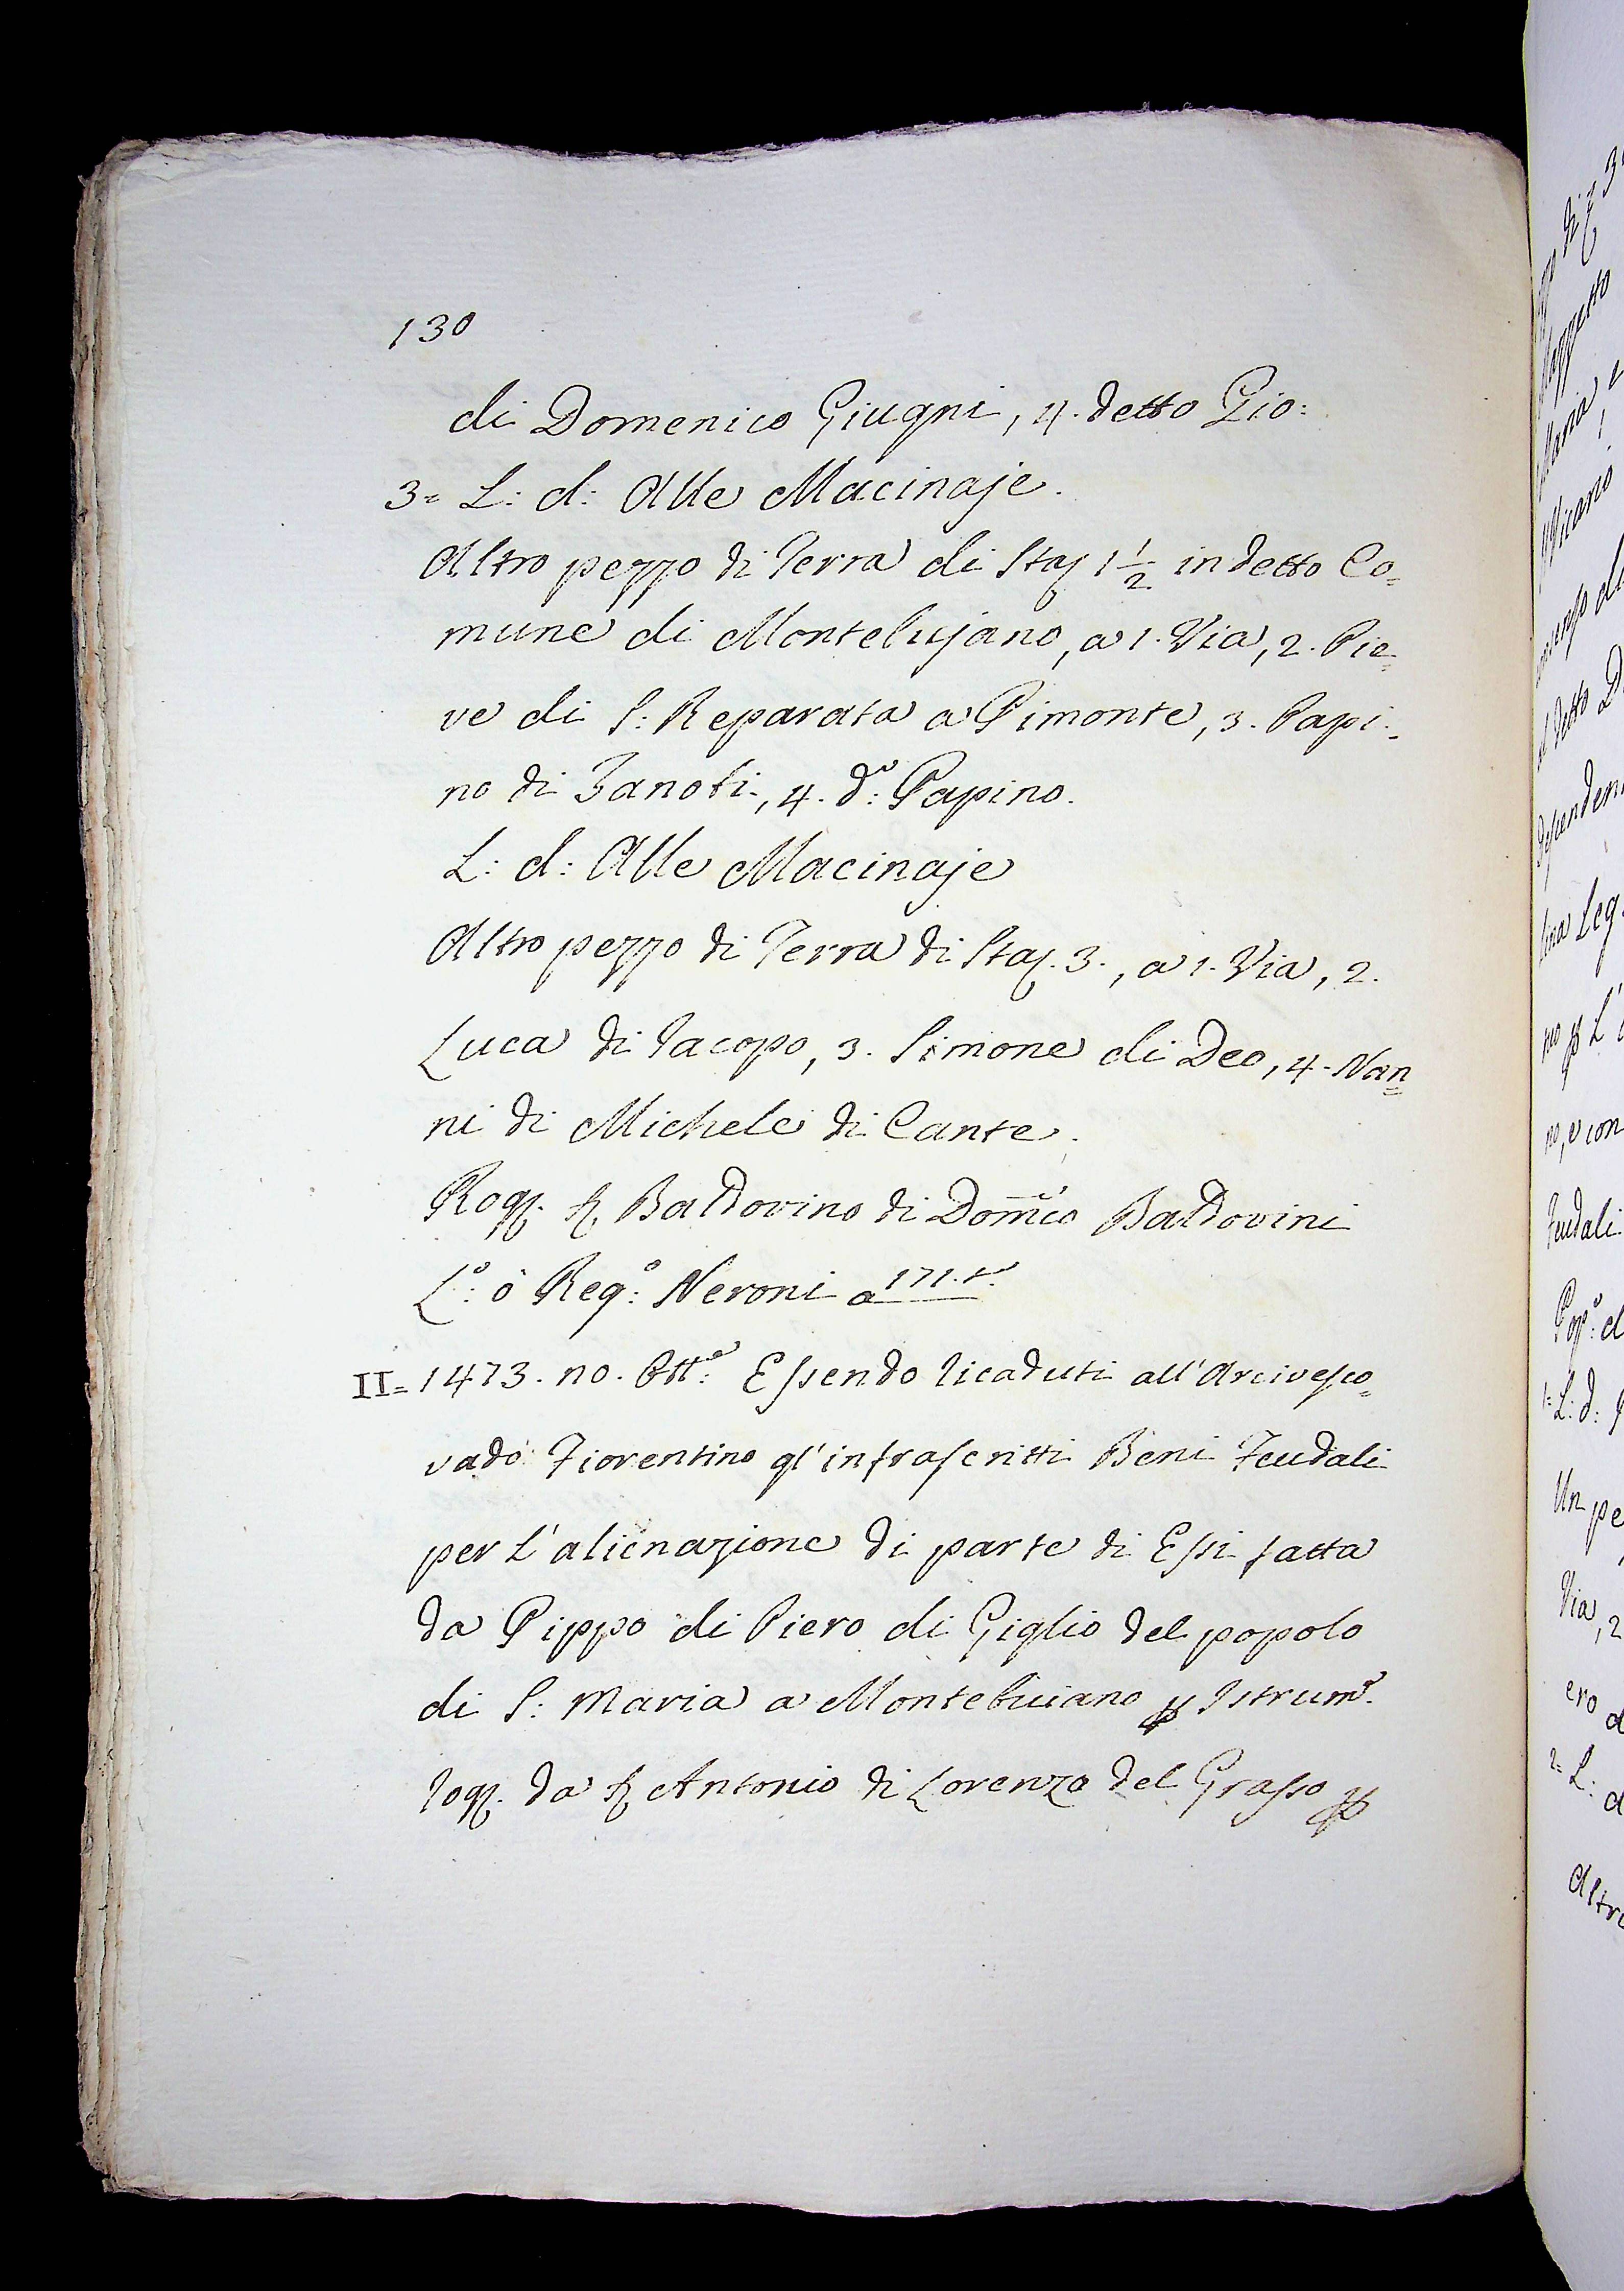 130
di Domenico Giugni, 4. detto Gio:
3= L: d: Alle Macinaje.
Altro pezzo di Terra di Staj 1 1/2 in detto Co=
mune di Montebujano, a 1. Via, 2. Pie=
ve di S: Reparata a Pimonte, 3. Papi=
no di Zanobi, 4. do: Papino.
L: d: Alle Macinaje
Altro pezzo di Terra di Staj. 3., a 1. Via, 2.
Luca di Jacopo, 3. Simone di Deo, 4. Nan=
ni di Michele di Cante.
Rog. Baldovino di Domco Baldovini
Lo: ò Rego: Neroni a 171. to
II= 1473. 10. Otte: Essendo ricaduti all'Arcivesco=
vado Fiorentino gl'infrascritti Beni Feudali
per l'alienazione di parte di Essi fatta
da Pippo di Piero di Giglio del popolo
di S: Maria a Montebuiano p Istrumo.
rog. da Antonio di Lorenzo del Grasso p
Feudali
Un pe
Via, 2
ero d
2= L: d
Altro